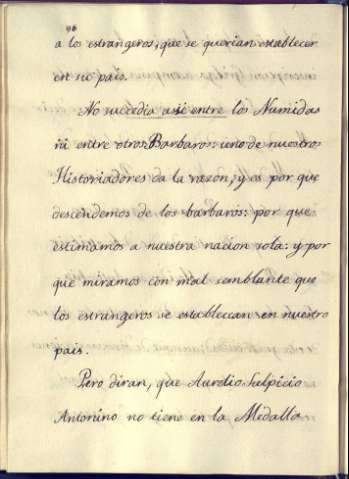 96
a los estrangeros, que se querian establecer
en su pais.
No succedia asi entre los Numidas
ni entre otros Barbaros: uno de nuestros
Historiadores da la razon, y es por que
descendemos de los barbaros: por que
estimamos a nuestra nacion sola: y por
que miramos con mal semblante que
los estrangeros se establezcan en nuestro
pais.
Pero diran, que Aurelio Sulpicio
Antonino no tiene en la Medalla